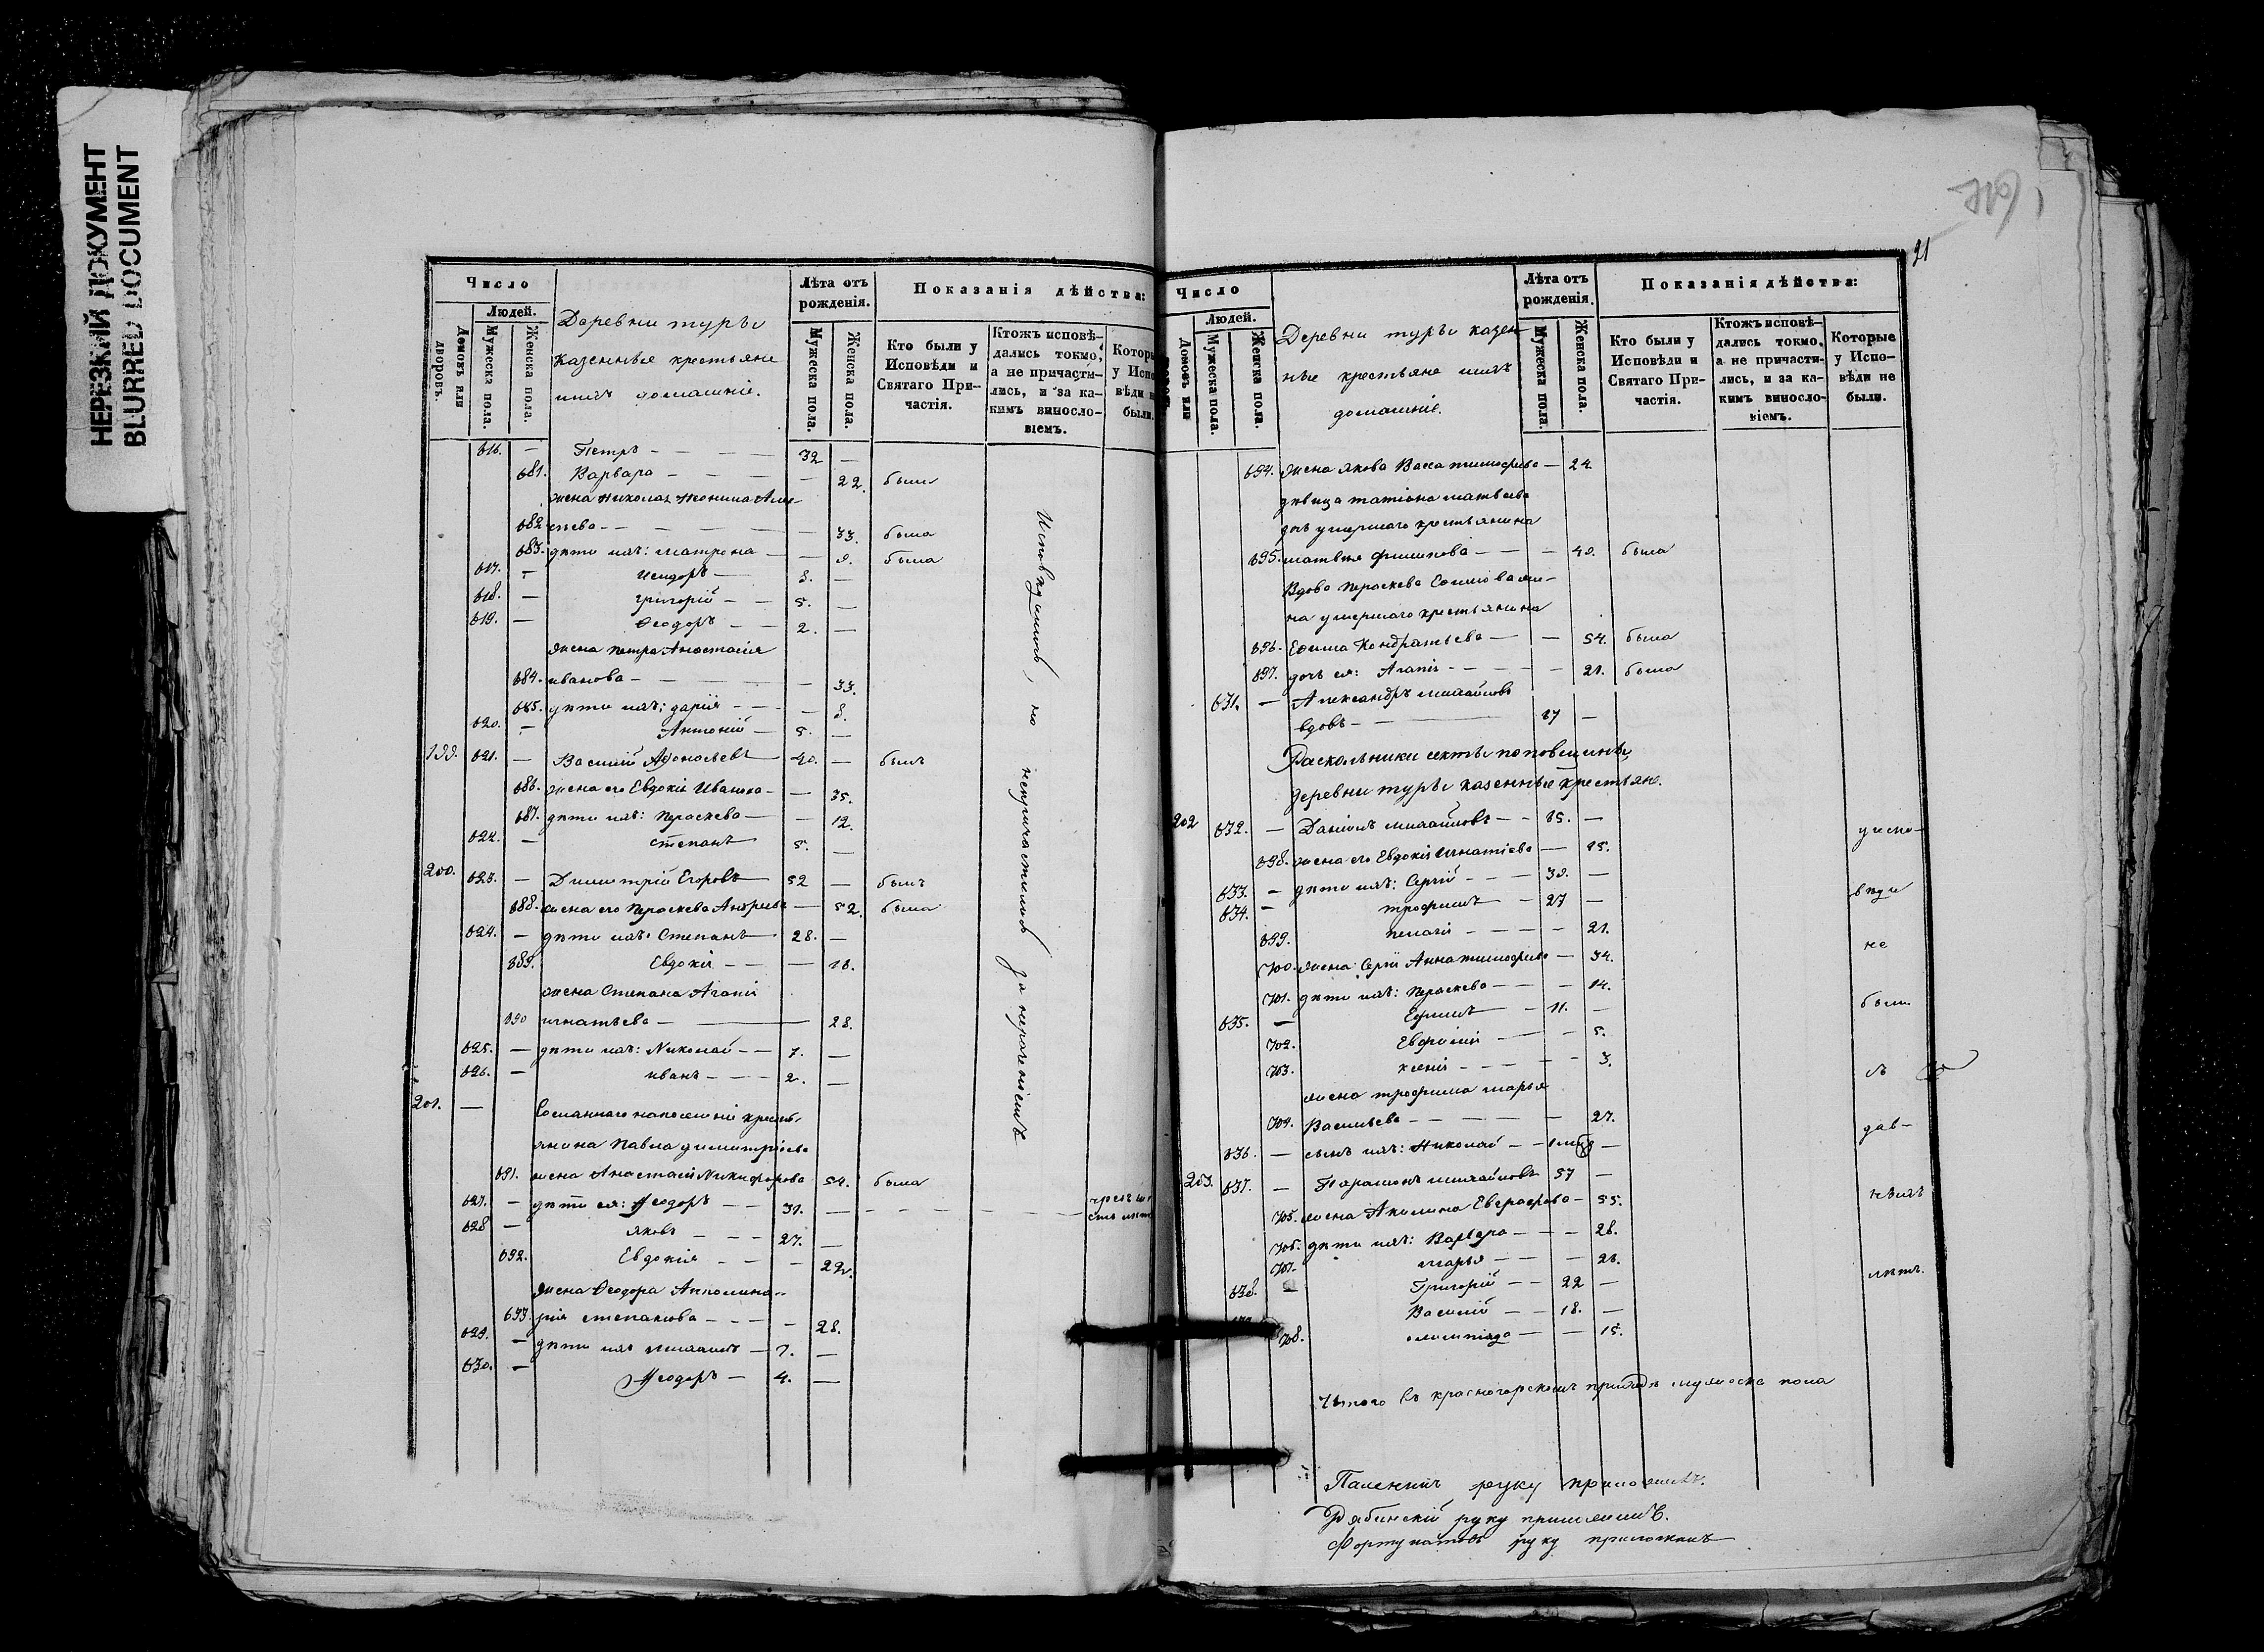 НЕРЕЗКИЙ ДОКУМЕНТ
BLURRED DOCUMENT
Число
Людей.
Домовъ или дворовъ.
Мужеска пола.
Женска пола.
Деревни туръи
казенные крестьяне
ихъ домашніе.
Лѣта отъ рожденія.
Мужеска пола.
Женска пола.
Показанія дѣйства:
Кто были у Исповѣди и Святаго Причастія.
Ктожъ исповѣдались токмо, а не причастились, и за какимъ винословіемъ.
616. — Петръ — 32 —
681. Варвара — — 22. были
жена Николая
682 — — 33. была
683. дѣти ихъ: Матрона — — 9. была
617. — Исидоръ — 8. —
618. — Григорій — 5. —
619. — Ѳеодоръ — 2. —
жена Петра Анастасія
684. иванова — — 33.
685. дѣти ихъ: дарія — — 8.
620. — Антоній — 5. —
199. 621. — Василий — 40. — былъ
686. жена его Евдокія Иванова — — 35.
687. дѣти ихъ: Параскева — — 12.
622. — степанъ 5. —
200. 623. — Димитрій Егоровъ 52 — былъ
688. жена его Параскева Андреева — 52. была
624. — дѣти ихъ: Степанъ 28. —
689. Евдокія — — 18.
жена Степана Агапія
690 игнатьева — — 28.
625. — дѣти ихъ: Николай — 7. —
626. — иванъ — 2. —
201. — сосланнаго на поселеніе кресть-
янина Павла димитріева
691. жена Анастасія Никифорова 54. была
627. — дѣти ея: Ѳеодоръ — 31. —
628 — яковъ — 27. —
692. Евдокія — — 22.
жена Ѳеодора Апполина-
693. рія степанова — — 28.
629. — дѣти ихъ Михаилъ — 7. —
630. — Ѳеодоръ — 4. —
Исповѣдались, но непричастились за нераченіемъ
21
Число
Людей.
Домовъ или
Мужеска пола.
Женска пола.
Деревни туръи казен-
ные крестьяне ихъ
домашніе.
Лѣта отъ рожденія.
Мужеска пола.
Женска пола.
Показанія дѣйства:
Кто были у Исповѣди и Святаго Причастія.
Ктожъ исповѣдались токмо, а не причастились, и за какимъ винословіемъ.
Которые у Исповѣди не были.
694. жена якова Васса тимофеева — 24.
дѣвица татіана матвеева
дочь умершаго крестьянина
695. матвея филипова — — 40. была
Вдова Параскева жи-
на умершаго крестьянина
696. Ефима Кондратьева — — 54. была
697. дочь ея: Агапія — — 21. была
631. — Александръ михайловъ
вдовъ — —
Раскольники секты поповщины,
деревни туръи казенные крестьяне.
202 632. — Даніилъ михайловъ —
698. жена его Евдокія Игнатіева —
633. — дѣти ихъ: Сергій — 30. —
634. — трофимъ — 27 —
699. пелагія — — 21.
700. жена Сергія Анна тимофеева — 34.
701. дѣти ихъ: Параскева — — 14.
635. — Ефимъ — 11. —
702. Евфимія — 5.
703. ксенія — — 3.
жена трофима марья
704. Васильева — — 27.
636. — сынъ ихъ: Николай —
203. 637. — Парамонъ михайловъ 57 —
705. жена Акилина Евграфова — 55.
706. дѣти ихъ: Варвара — — 28.
707. марья — — 26.
638. — Григорій — 22 —
Василій — 18. —
708. олимпіада — — 15.
у испо-
вѣди
не
были
съ
дав-
нихъ
лѣтъ.
Итого въ красногорскомъ приходѣ мужеска пола
руку приложилъ.
Рябинскій руку приложилъ.
Фортунатовъ руку приложилъ